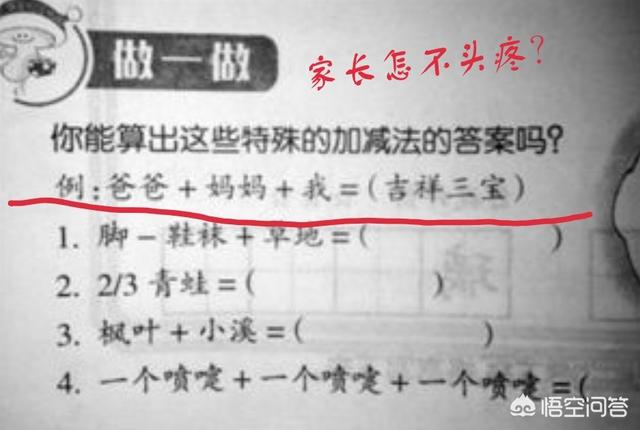 做一做
家长怎不头疼?
你能算出这些特殊的加减法的答案吗?
例:爸爸+妈妈+我=(吉祥三宝)
1. 脚-鞋袜+草地=( )
2. 2/3 青蛙=( )
3. 枫叶+小溪=( )
4. 一个喷嚏+一个喷嚏+一个喷嚏=(
悟空问答